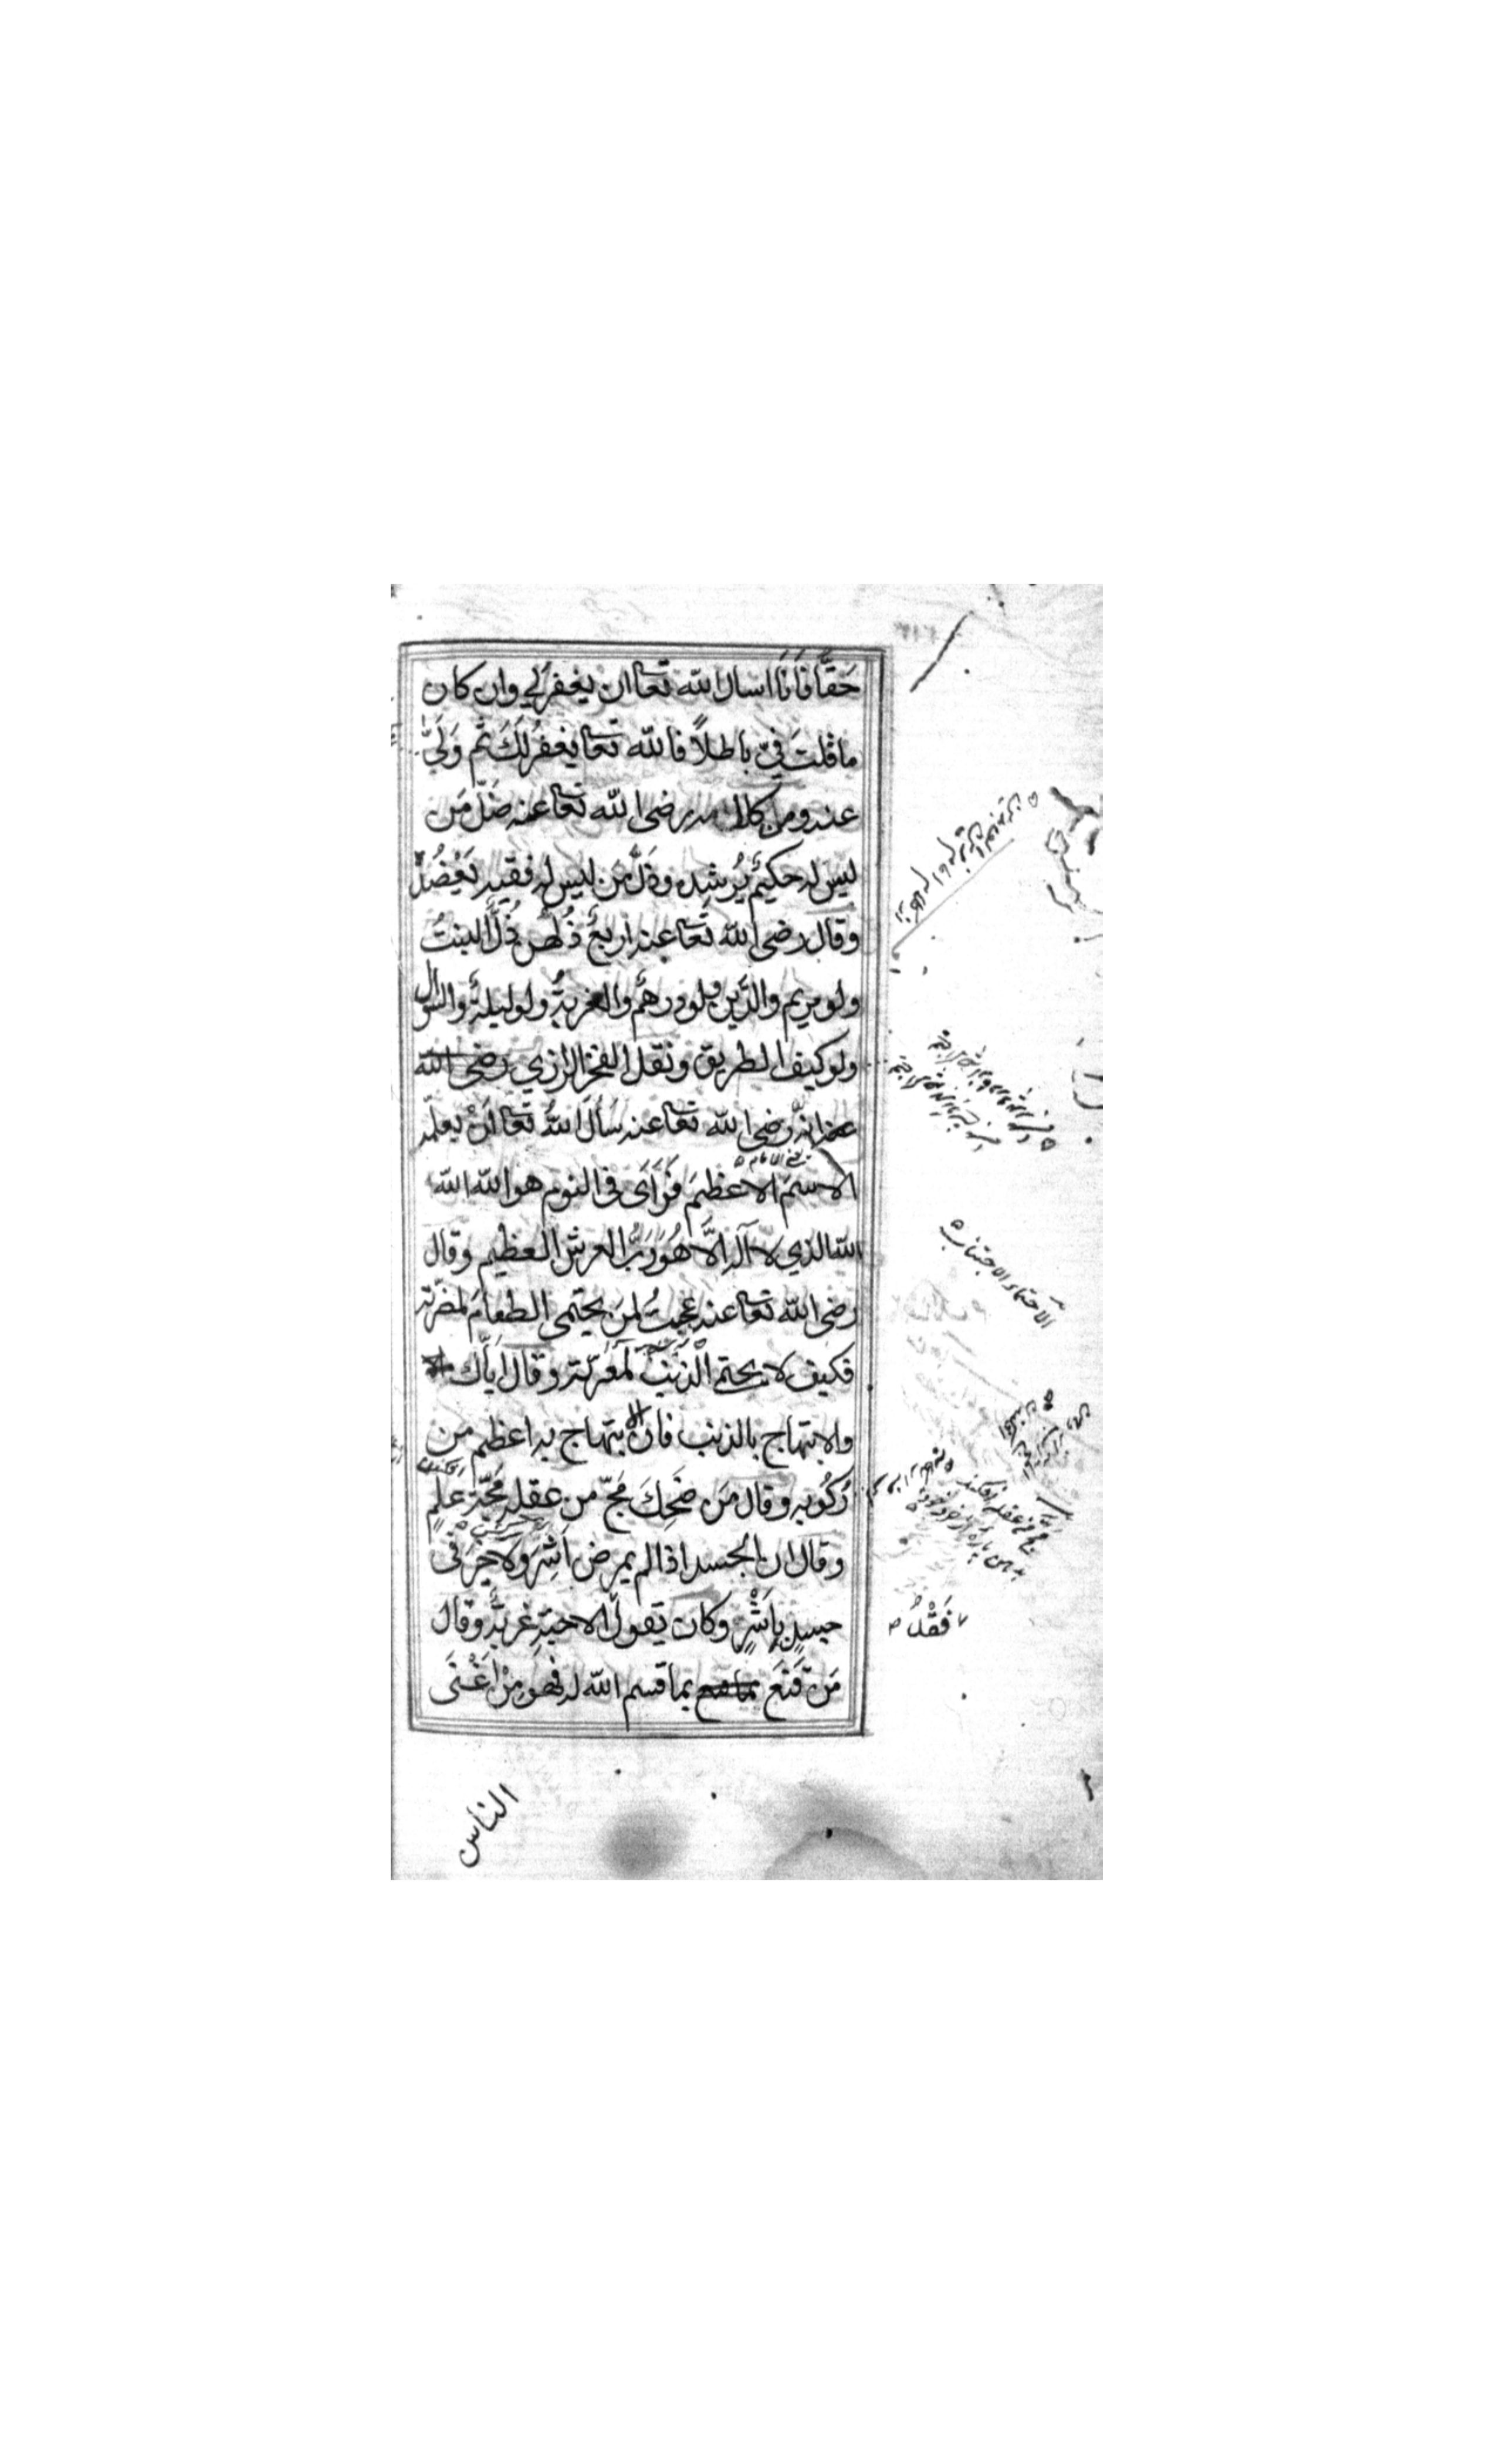 حَقًّا فَاَنَا اسال الله تعا ان يغفر لي وان كان
ما قلتَ فيّ باطلاً فالله تعا يغفر لَكَ ثم وَلَّى
عنه ومن كلامه رضى الله تعا عنه ضَلَّ مَن
ليس له حكيمٌ يُرشِده وذَلَّ مَن ليس له فقيه يَعْضُدُ
وقال رضى الله تعا عنه اربعٌ ذُلهن ذُلٌّ البنتُ
ولو مريم والدَّين ولو درهم والغربةُ ولو ليلة والسؤال
ولو كيف الطريق ونقل الفخر الرازي رضى الله
عنه انه رضى الله تعا عنه سَأَلَ اللهَ تعا اَنْ يعلّمه
الاسمَ الاعظمَ فَرَاَى فى النوم هو الله الله
الله الذي لا اله اِلَّا هُوَ رَبُّ العرش العظيم وقال
رضى الله تعا عنه عجبتُ لِمَن يحتمى الطعامَ لمضرّته
فكيف لا يحتم الذنبَ لمعرّته وقال اِيّاك
والابتهاج بالذنب فان الابتهاج به اعظم من
رُكُوبه وقال مَن ضَحِكَ مَجّ من عقله مَجّة علمٍ
وقال ان الجسد اذا لم يمرض اَشِرَ ولا خير فى
جسدٍ يأشَرُ وكان يقول فقدُ الاحبّةِ غربةٌ وقال
مَن قَنَعَ بما قسم الله له فهو مِنْ اَغْنَى
الاحتماء الاجتناب
فَقْدُ
الناس